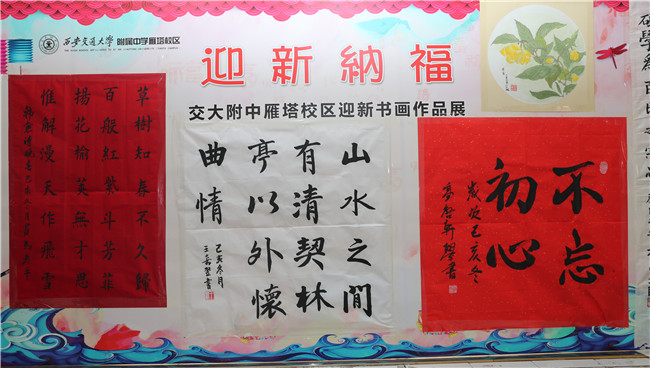 西安交通大学 附属中学雁塔校区
迎新納福
交大附中雁塔校区迎新书画作品展
草樹知春不久歸
百般紅紫斗芳菲
揚花榆莢無才思
惟解漫天作飛雪
山水之間
有清契林
亭以外懷
曲情
己亥冬月
不忘
初心
歲次己亥冬